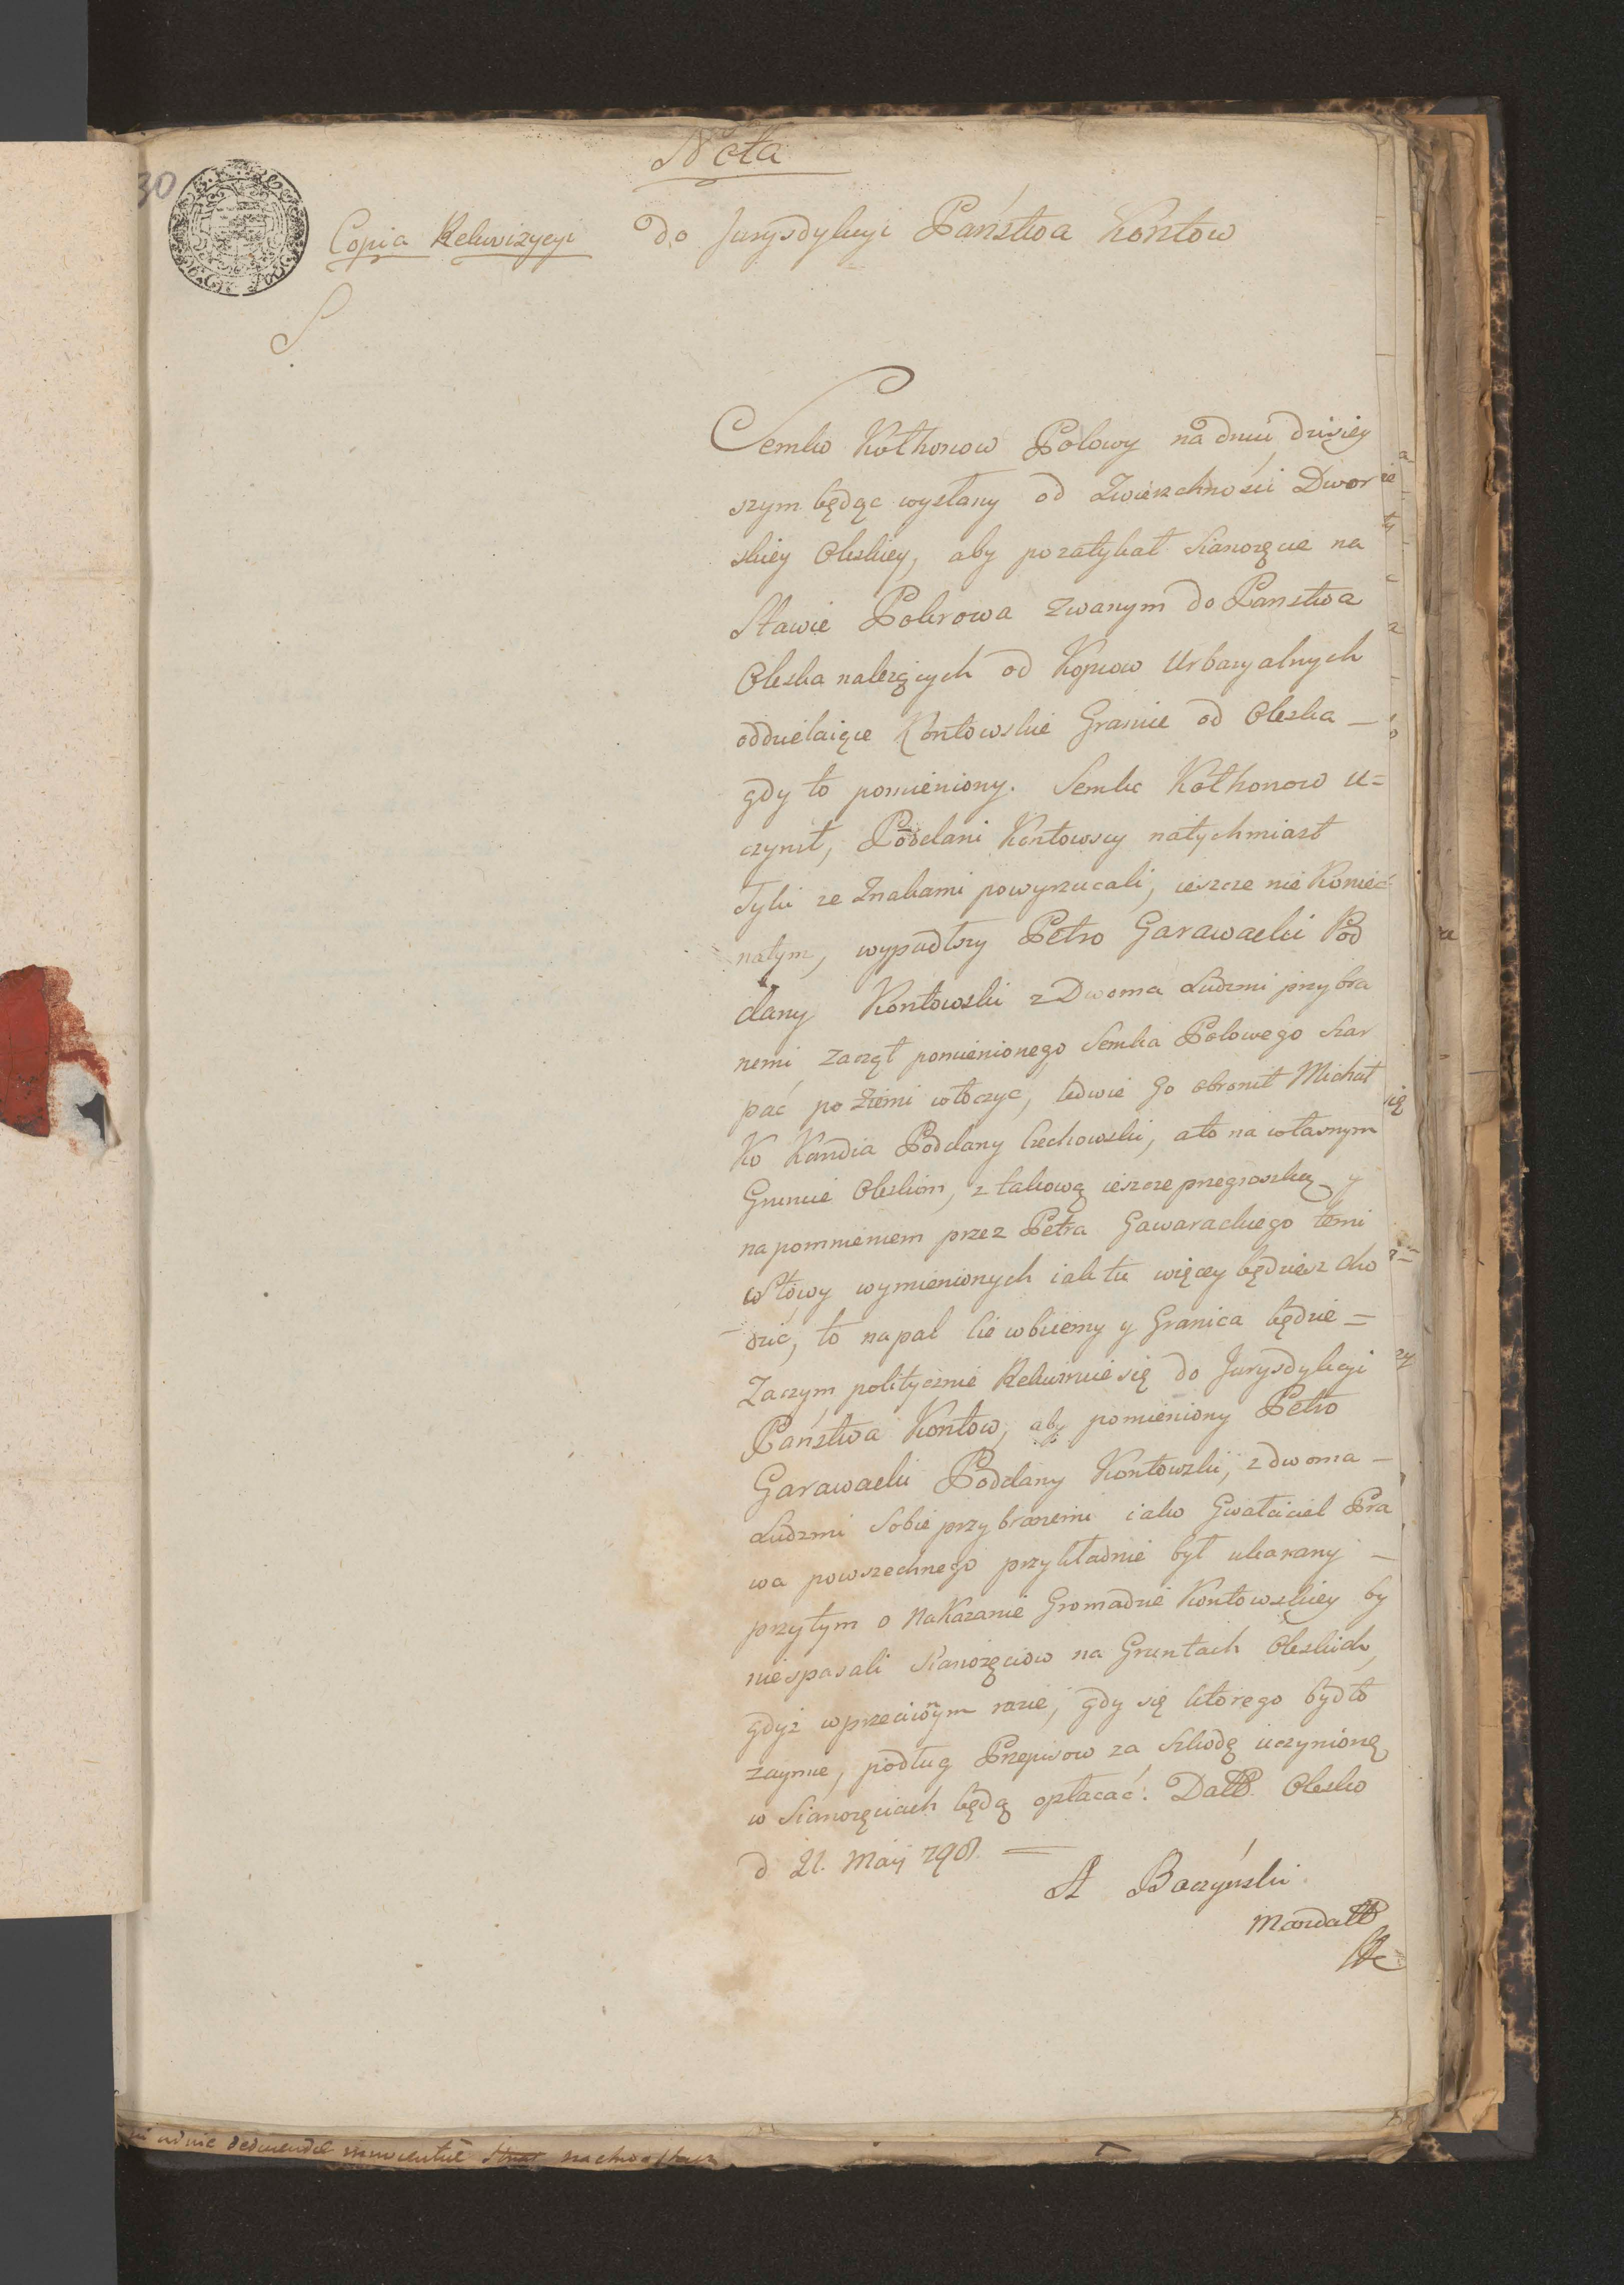 30
Nota
Copia Rekwizycyi do Jurysdykcyi Państwa Kontow
Semko Kołhonow Polowy na dniu dzisiey
szym będąc wysłany od Zwierzchności Dwor
skiey Oleskiey, aby pozatykał Sianozęcie na
Stawie Pokrowa zwanym do Panstwa
Oleska nalezących od Kopcow Urbaryalnych
oddzielaiące Kontowskie Granice od Oleska —
gdy to pomieniony. Semko Kołhonow u=
czynił, Poddani Kontowscy natychmiast
Tyki ze Znakami powyrzucali, ieszcze nie Koniec
natym, wypadłszy Petro Garawacki Pod
dany Kontowski z Dwoma Ludzmi przybra
nemi zaczął pomienionego Semka Polowego szar
pać po Ziemi włoczyc, ledwie go obronił Michał
Ko Kandia Poddany Czechowski, ato na własnym
Gruncie Oleskim, z takową ieszcze pregroszką y
napomnieniem przez Petra Gawarackiego temi
Słowy wymienionych iak tu więcey będziesz cho
dzic, to napal Cie wbiiemy y Granica będzie =
Zaczym politycznie Rekwiruie się do Jurysdykcyi
Państwa Kontow, aby pomieniony Petro
Garawacki Poddany Kontowski, z dwoma —
Ludzmi Sobie przybranemi iako Gwałciciel Pra
wa powszechnego przykładnie był ukarany —
przytym o Nakazanie Gromadzie Kontowskiey by
niespasali Sianozęciow na Gruntach Oleskich,
gdyż wprzeciwnym razie, gdy się ktorego bydło
zaymie, podług Przepisow za Szkodę uczynioną
w Sianozęciach będą opłacać. Datto Olesko
d 21. Maij 798. =
A Baczyński
Mandatt